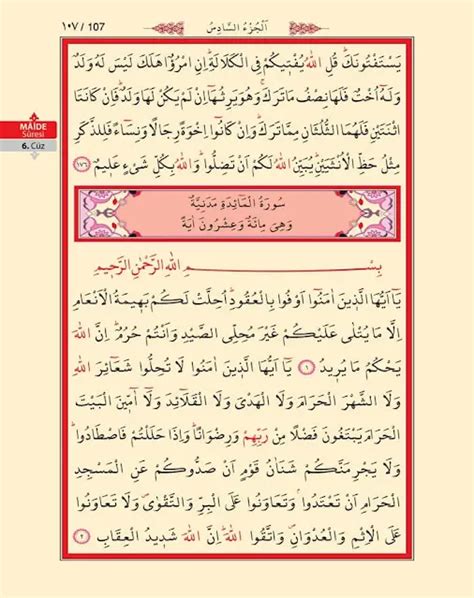 ١٠٧ / 107
اَلْجُزْءُ السَّادِسُ
MÂİDE
Sûresi
6. Cüz
يَسْتَفْتُونَكَۜ قُلِ اللّٰهُ يُفْت۪يكُمْ فِي الْكَلَالَةِۜ اِنِ امْرُؤٌا هَلَكَ لَيْسَ لَهُ وَلَدٌ
وَلَهُٓ اُخْتٌ فَلَهَا نِصْفُ مَا تَرَكَۚ وَهُوَ يَرِثُهَٓا اِنْ لَمْ يَكُنْ لَهَا وَلَدٌۜ فَاِنْ كَانَتَا
اثْنَتَيْنِ فَلَهُمَا الثُّلُثَانِ مِمَّا تَرَكَۜ وَاِنْ كَانُٓوا اِخْوَةً رِجَالًا وَنِسَٓاءً فَلِلذَّكَرِ
مِثْلُ حَظِّ الْاُنْثَيَيْنِۜ يُبَيِّنُ اللّٰهُ لَكُمْ اَنْ تَضِلُّواۜ وَاللّٰهُ بِكُلِّ شَيْءٍ عَل۪يمٌ ﴿١٧٦﴾
سُورَةُ الْمَٓائِدَةِ مَدَنِيَّةٌ
وَهِيَ مِائَةٌ وَعِشْرُونَ اٰيَةً
بِسْمِ اللّٰهِ الرَّحْمٰنِ الرَّح۪يمِ
يَٓا اَيُّهَا الَّذ۪ينَ اٰمَنُٓوا اَوْفُوا بِالْعُقُودِۜ اُحِلَّتْ لَكُمْ بَه۪يمَةُ الْاَنْعَامِ
اِلَّا مَا يُتْلٰى عَلَيْكُمْ غَيْرَ مُحِلِّي الصَّيْدِ وَاَنْتُمْ حُرُمٌۜ اِنَّ اللّٰهَ
يَحْكُمُ مَا يُر۪يدُ ﴿١﴾ يَٓا اَيُّهَا الَّذ۪ينَ اٰمَنُوا لَا تُحِلُّوا شَعَٓائِرَ اللّٰهِ
وَلَا الشَّهْرَ الْحَرَامَ وَلَا الْهَدْيَ وَلَا الْقَلَٓائِدَ وَلَٓا آٰمّ۪ينَ الْبَيْتَ
الْحَرَامَ يَبْتَغُونَ فَضْلًا مِنْ رَبِّهِمْ وَرِضْوَانًاۜ وَاِذَا حَلَلْتُمْ فَاصْطَادُواۜ
وَلَا يَجْرِمَنَّكُمْ شَنَاٰنُ قَوْمٍ اَنْ صَدُّوكُمْ عَنِ الْمَسْجِدِ
الْحَرَامِ اَنْ تَعْتَدُواۢ وَتَعَاوَنُوا عَلَى الْبِرِّ وَالتَّقْوٰىۖ وَلَا تَعَاوَنُوا
عَلَى الْاِثْمِ وَالْعُدْوَانِۖ وَاتَّقُوا اللّٰهَۜ اِنَّ اللّٰهَ شَد۪يدُ الْعِقَابِ ﴿٢﴾